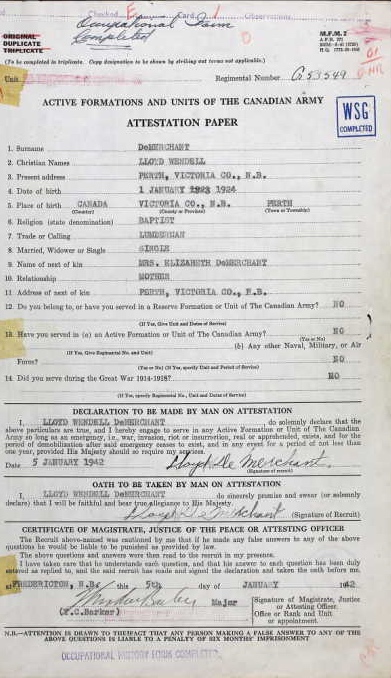 Checked E Card. 1 Observations
Occupational Form
Completed
ORIGINAL
DUPLICATE
TRIPLICATE
M.F.M. 2
(To be completed in triplicate. Copy designation to be shown by striking out terms not applicable.)
Unit Regimental Number G 53549
ACTIVE FORMATIONS AND UNITS OF THE CANADIAN ARMY
ATTESTATION PAPER
WSG
COMPLETED
1. Surname DeMERCHANT
2. Christian Names LLOYD WENDELL
3. Present address PERTH, VICTORIA CO., N.B.
4. Date of birth 1 JANUARY 1923 1924
5. Place of birth CANADA VICTORIA CO., N.B. PERTH
(Country) (County or Province) (Town or Township)
6. Religion (state denomination) BAPTIST
7. Trade or Calling LUMBERMAN
8. Married, Widower or Single SINGLE
9. Name of next of kin MRS. ELIZABETH DeMERCHANT
10. Relationship MOTHER
11. Address of next of kin PERTH, VICTORIA CO., N.B.
12. Do you belong to, or have you served in a Reserve Formation or Unit of The Canadian Army? NO
(If Yes, Give Unit and Dates of Service)
13. Have you served in (a) an Active Formation or Unit of The Canadian Army? NO
(Yes or No)
(b) Any other Naval, Military, or Air
(If Yes, Give Regimental No. and Unit)
Force? NO
(Yes or No) (If Yes, specify Unit and Period of Service)
14. Did you serve during the Great War 1914-1918? NO
(If Yes, specify Regimental No., Unit and Dates of Service)
DECLARATION TO BE MADE BY MAN ON ATTESTATION
I, LLOYD WENDELL DeMERCHANT do solemnly declare that the
above particulars are true, and I hereby engage to serve in any Active Formation or Unit of The Canadian
Army so long as an emergency, i.e., war, invasion, riot or insurrection, real or apprehended, exists, and for the
period of demobilization after said emergency ceases to exist, and in any event for a period of not less than
one year, provided His Majesty should so long require my services.
Date 5 JANUARY 1942 Lloyd De Merchant.
(Signature of recruit)
OATH TO BE TAKEN BY MAN ON ATTESTATION
I, LLOYD WENDELL DeMERCHANT do sincerely promise and swear (or solemnly
declare) that I will be faithful and bear true allegiance to His Majesty.
Lloyd De Merchant (Signature of Recruit)
CERTIFICATE OF MAGISTRATE, JUSTICE OF THE PEACE OR ATTESTING OFFICER
The Recruit above-named was cautioned by me that if he made any false answers to any of the above
questions he would be liable to be punished as provided by law.
The above questions and answers were then read to the recruit in my presence.
I have taken care that he understands each question, and that his answer to each question has been duly
entered as replied to, and the said recruit has made and signed the declaration and taken the oath before me,
at FREDERICTON, N.B., this 5th day of JANUARY 1942
Major
(F.C.Barker)
Signature of Magistrate, Justice
or Attesting Officer.
Office or Rank and Unit
or appointment.
N.B.—ATTENTION IS DRAWN TO THE FACT THAT ANY PERSON MAKING A FALSE ANSWER TO ANY OF THE
ABOVE QUESTIONS IS LIABLE TO A PENALTY OF SIX MONTHS' IMPRISONMENT
OCCUPATIONAL HISTORY FORM COMPLETED